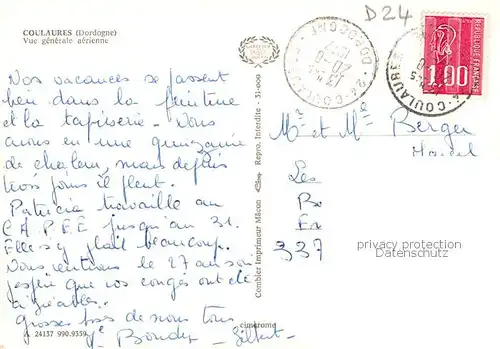 COULAURES (Dordogne)
Vue générale aérienne
Nos vacances se passent
bien dans la peinture
et la tapisserie. Nous
avons eu une quinzaine
de chaleur, mais depuis
trois jours il pleut.
Patricia travaille au
C.A.P.E.E jusqu'au 31.
Elle s'y plait beaucoup.
Nous rentrons le 27 au soir
j'espère que vos congés ont été
agréables.
Grosses bises de nous tous
Gilbert
A 24137 990.9359
cimarome
Combier Imprimeur Mâcon
Repro. Interdite - 31-000
D24
24-COULAURES
DORDOGNE
REPUBLIQUE FRANÇAISE
1,00
Mr et Mme Berger
Marcel
Les
337
privacy protection
Datenschutz